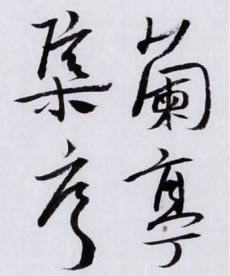 蘭亭
集序